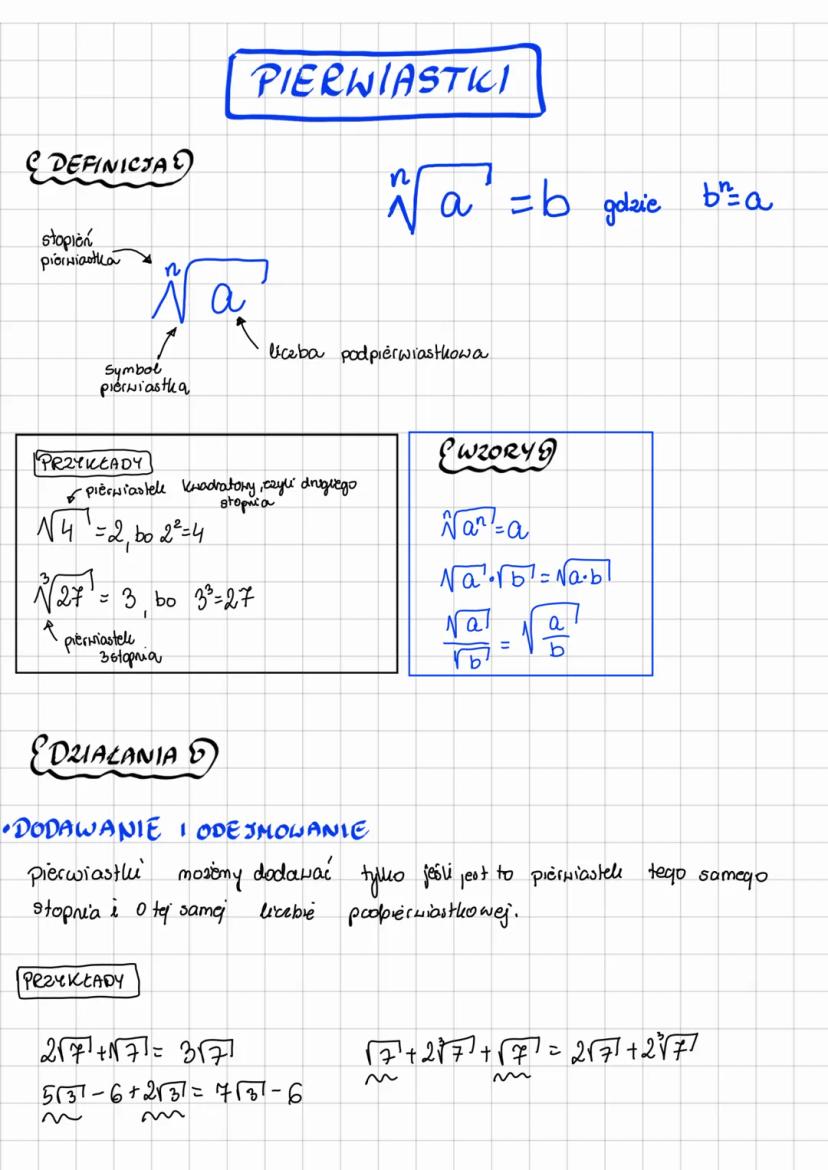 PIERWIASTKI
DEFINICJA
ⁿ√a = b gdzie bⁿ=a
stopień
pierwiastka
ⁿ√a
liczba podpierwiastkowa
symbol
pierwiastka
PRZYKŁADY
pierwiastek kwadratowy, czyli drugiego
stopnia
√4 = 2, bo 2²=4
³√27 = 3, bo 3³=27
pierwiastek
3 stopnia
WZORY
ⁿ√aⁿ = a
√a · √b = √a·b
√a/√b = √a/b
DZIAŁANIA
• DODAWANIE I ODEJMOWANIE
pierwiastki możemy dodawać tylko jeśli jest to pierwiastek tego samego
stopnia i o tej samej liczbie podpierwiastkowej.
PRZYKŁADY
2√7 + √7 = 3√7
√7 + 2³√7 + √7 = 2√7 + 2³√7
5√3 - 6 + 2√3 = 7√3 - 6